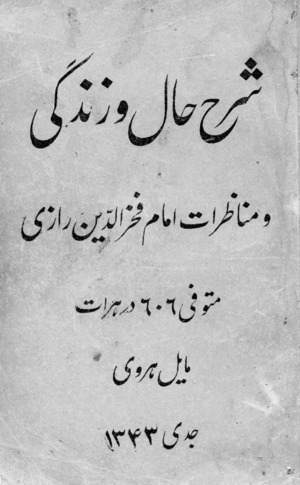 شرح حال و زندگی
و مناظرات امام فخرالدّین رازی
متوفی ۶۰۶ در هرات
مایل هروی
جدی ۱۳۴۳